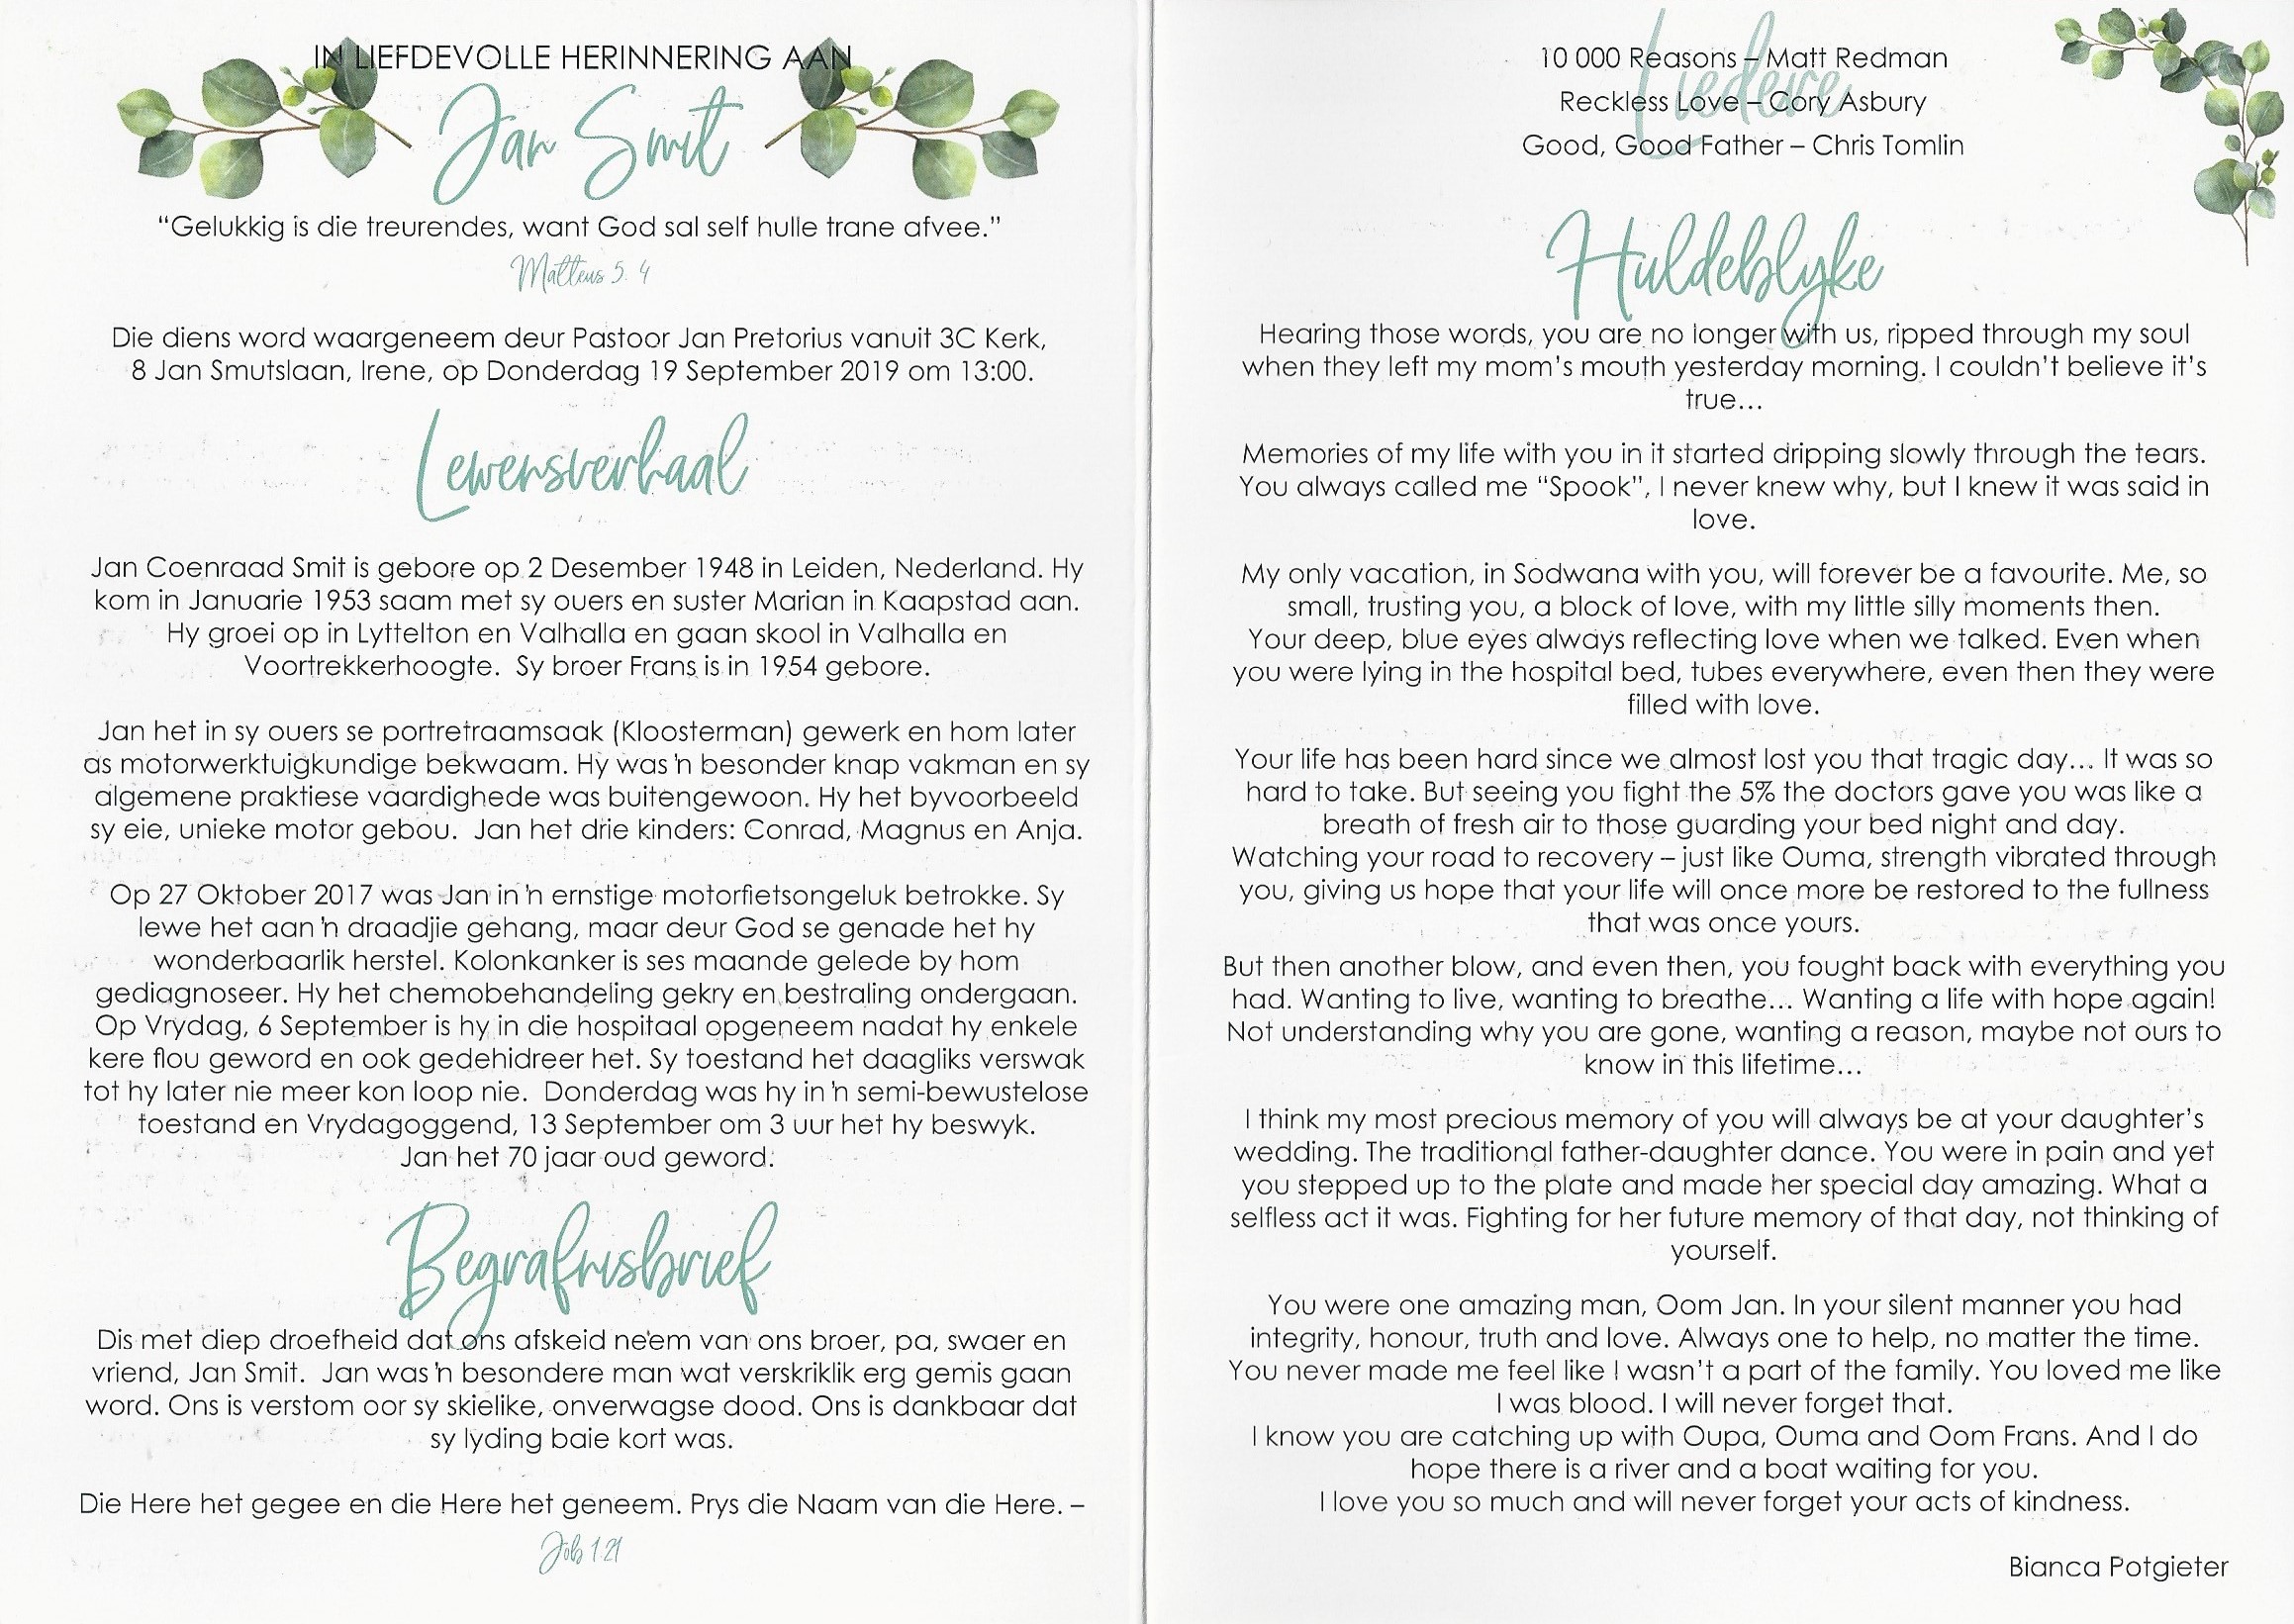 IN LIEFDEVOLLE HERINNERING AAN
Jan Smit
“Gelukkig is die treurendes, want God sal self hulle trane afvee.”
Matteus 5. 4
Die diens word waargeneem deur Pastoor Jan Pretorius vanuit 3C Kerk,
8 Jan Smutslaan, Irene, op Donderdag 19 September 2019 om 13:00.
Lewensverhaal
Jan Coenraad Smit is gebore op 2 Desember 1948 in Leiden, Nederland. Hy
kom in Januarie 1953 saam met sy ouers en suster Marian in Kaapstad aan.
Hy groei op in Lyttelton en Valhalla en gaan skool in Valhalla en
Voortrekkerhoogte.  Sy broer Frans is in 1954 gebore.
Jan het in sy ouers se portretraamsaak (Kloosterman) gewerk en hom later
as motorwerktuigkundige bekwaam. Hy was 'n besonder knap vakman en sy
algemene praktiese vaardighede was buitengewoon. Hy het byvoorbeeld
sy eie, unieke motor gebou.  Jan het drie kinders: Conrad, Magnus en Anja.
Op 27 Oktober 2017 was Jan in 'n ernstige motorfietsongeluk betrokke. Sy
lewe het aan 'n draadjie gehang, maar deur God se genade het hy
wonderbaarlik herstel. Kolonkanker is ses maande gelede by hom
gediagnoseer. Hy het chemobehandeling gekry en bestraling ondergaan.
Op Vrydag, 6 September is hy in die hospitaal opgeneem nadat hy enkele
kere flou geword en ook gedehidreer het. Sy toestand het daagliks verswak
tot hy later nie meer kon loop nie.  Donderdag was hy in 'n semi-bewustelose
toestand en Vrydagoggend, 13 September om 3 uur het hy beswyk.
Jan het 70 jaar oud geword.
Begrafnisbrief
Dis met diep droefheid dat ons afskeid neem van ons broer, pa, swaer en
vriend, Jan Smit.  Jan was 'n besondere man wat verskriklik erg gemis gaan
word. Ons is verstom oor sy skielike, onverwagse dood. Ons is dankbaar dat
sy lyding baie kort was.
Die Here het gegee en die Here het geneem. Prys die Naam van die Here. –
Job 1:21
Liedere
10 000 Reasons – Matt Redman
Reckless Love – Cory Asbury
Good, Good Father – Chris Tomlin
Huldeblyke
Hearing those words, you are no longer with us, ripped through my soul
when they left my mom’s mouth yesterday morning. I couldn’t believe it’s
true…
Memories of my life with you in it started dripping slowly through the tears.
You always called me “Spook”, I never knew why, but I knew it was said in
love.
My only vacation, in Sodwana with you, will forever be a favourite. Me, so
small, trusting you, a block of love, with my little silly moments then.
Your deep, blue eyes always reflecting love when we talked. Even when
you were lying in the hospital bed, tubes everywhere, even then they were
filled with love.
Your life has been hard since we almost lost you that tragic day… It was so
hard to take. But seeing you fight the 5% the doctors gave you was like a
breath of fresh air to those guarding your bed night and day.
Watching your road to recovery – just like Ouma, strength vibrated through
you, giving us hope that your life will once more be restored to the fullness
that was once yours.
But then another blow, and even then, you fought back with everything you
had. Wanting to live, wanting to breathe… Wanting a life with hope again!
Not understanding why you are gone, wanting a reason, maybe not ours to
know in this lifetime…
I think my most precious memory of you will always be at your daughter’s
wedding. The traditional father-daughter dance. You were in pain and yet
you stepped up to the plate and made her special day amazing. What a
selfless act it was. Fighting for her future memory of that day, not thinking of
yourself.
You were one amazing man, Oom Jan. In your silent manner you had
integrity, honour, truth and love. Always one to help, no matter the time.
You never made me feel like I wasn’t a part of the family. You loved me like
I was blood. I will never forget that.
I know you are catching up with Oupa, Ouma and Oom Frans. And I do
hope there is a river and a boat waiting for you.
I love you so much and will never forget your acts of kindness.
Bianca Potgieter